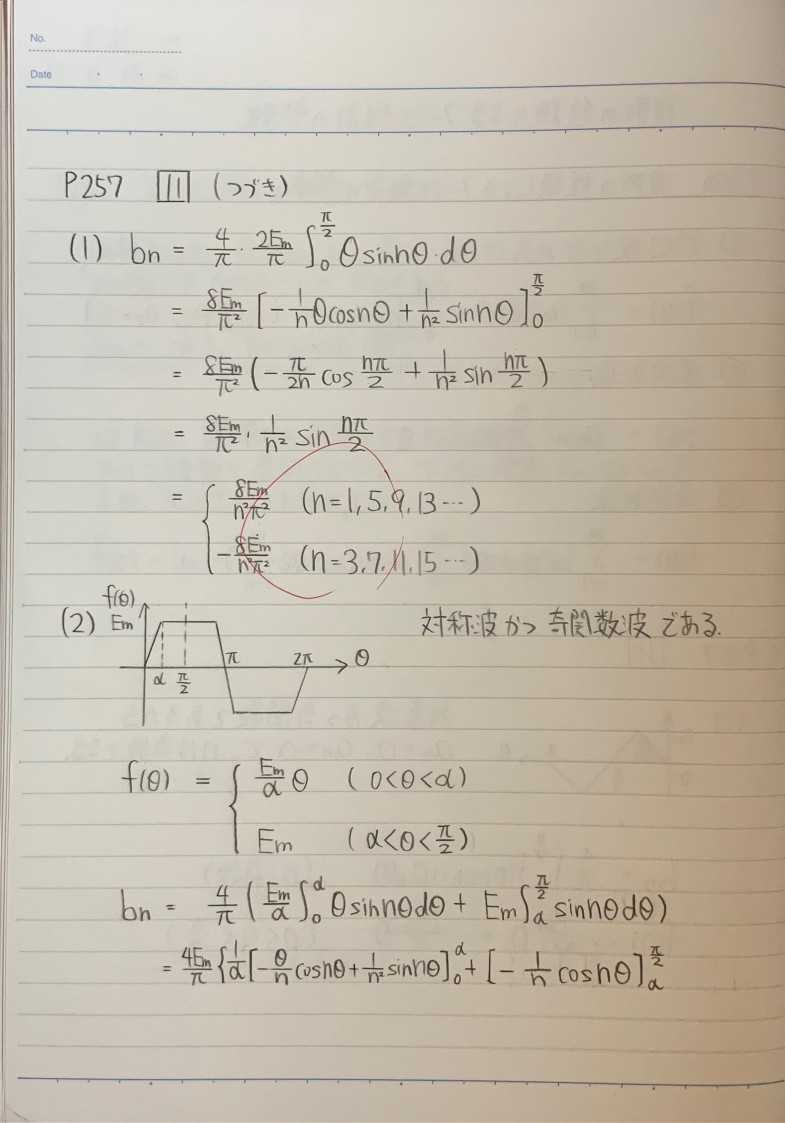 No.
Date
P257 11 (つづき)
(1) bn = 4/π · 2Em/π ∫₀^{π/2} θ sin nθ · dθ
= 8Em/π² [ -1/n θ cos nθ + 1/n² sin nθ ]₀^{π/2}
= 8Em/π² ( -π/2n cos nπ/2 + 1/n² sin nπ/2 )
= 8Em/π² · 1/n² sin nπ/2
= { 8Em/n²π² (n=1, 5, 9, 13 ⋯)
-8Em/n²π² (n=3, 7, 11, 15 ⋯)
f(θ)
(2) Em 対称波かつ奇関数波である.
π 2π θ
α π/2
f(θ) = { Em/α θ (0<θ<α)
Em (α<θ<π/2)
bn = 4/π ( Em/α ∫₀^α θ sin nθ dθ + Em ∫_α^{π/2} sin nθ dθ )
= 4Em/π { 1/α [ -θ/n cos nθ + 1/n² sin nθ ]₀^α + [ -1/n cos nθ ]_α^{π/2}